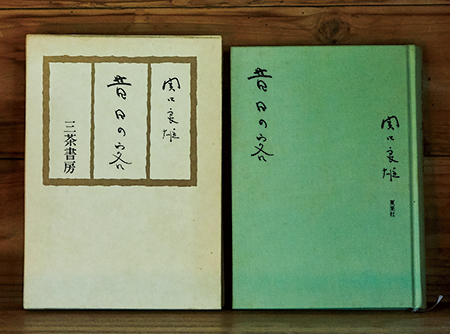 関口良雄
昔日の客
三茶書房
昔日の客
関口良雄
夏葉社